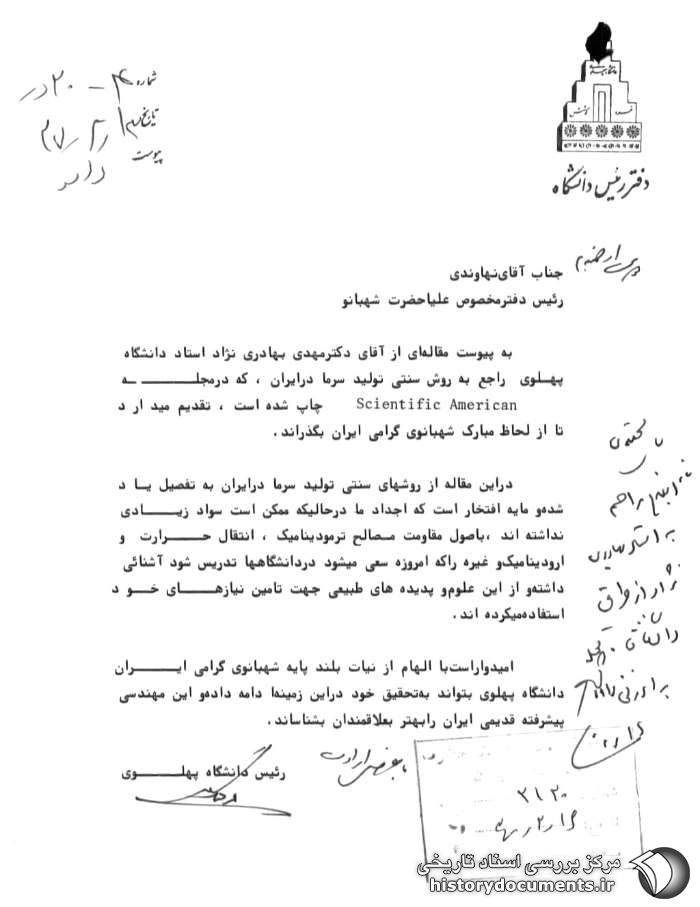 دفتر رئیس دانشگاه
شماره
تاریخ
پیوست
جناب آقای نهاوندی
رئیس دفتر مخصوص علیاحضرت شهبانو
به پیوست مقاله‌ای از آقای دکتر مهدی بهادری نژاد استاد دانشگاه
پهلوی راجع به روش سنتی تولید سرما در ایران ، که در مجله
Scientific American چاپ شده است ، تقدیم میدارد
تا از لحاظ مبارک شهبانوی گرامی ایران بگذراند .
در این مقاله از روشهای سنتی تولید سرما در ایران به تفصیل یاد
شده و مایه افتخار است که اجداد ما در حالیکه ممکن است سواد زیادی
نداشته اند ، باصول مقاومت مصالح ترمودینامیک ، انتقال حرارت و
ارودینامیک و غیره را که امروزه سعی میشود در دانشگاهها تدریس شود آشنائی
داشته و از این علوم و پدیده های طبیعی جهت تامین نیازهای خود
استفاده میکرده اند .
امیدوار است با الهام از نیات بلند پایه شهبانوی گرامی ایران
دانشگاه پهلوی بتواند به تحقیق خود در این زمینه ادامه داده و این مهندسی
پیشرفته قدیمی ایران را بهتر بعلاقمندان بشناساند .
با عرض ارادت
رئیس دانشگاه پهلوی
۳۱۲۰
مرکز بررسی اسناد تاریخی
historydocuments.ir